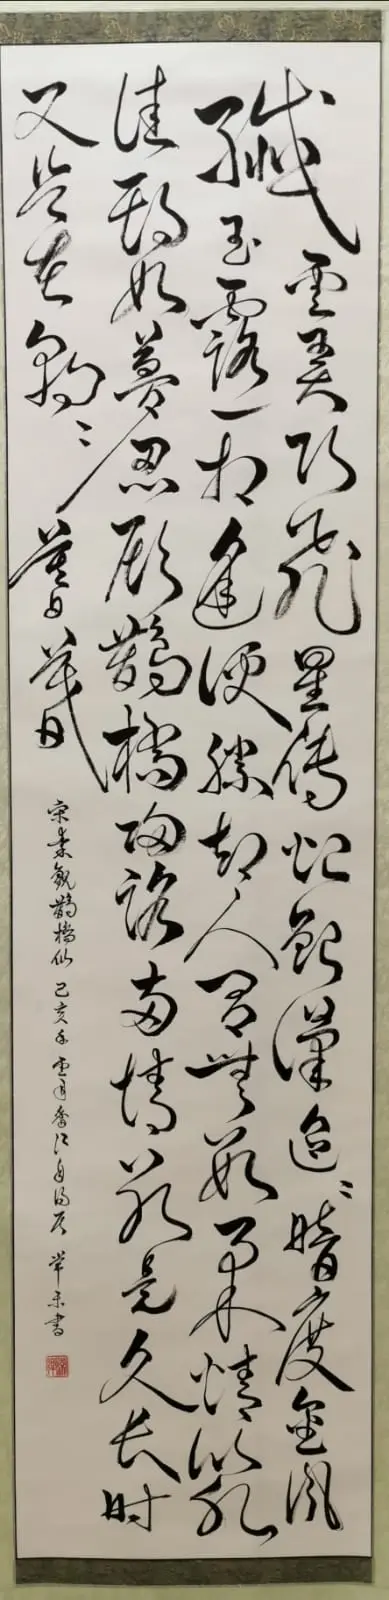 纖雲弄巧飛星傳恨銀漢迢〻暗度金風
玉露一相逢便勝却人間無數柔情似水
佳期如夢忍顧鵲橋歸路兩情若是久長時
又豈在朝〻暮暮
宋秦觀鵲橋仙 己亥年 香江自得居 書